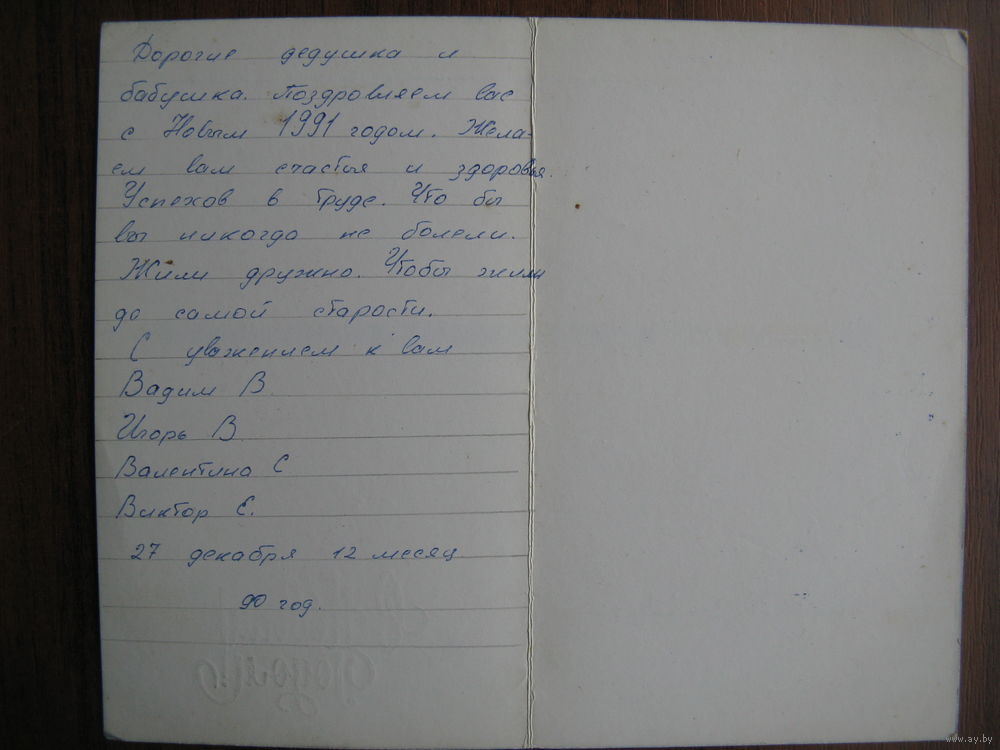 Дорогие дедушка и
бабушка. Поздровляем вас
с Новым 1991 годом. Жела-
ем вам счастья и здоровья.
Успехов в труде. Что бы
вы никогда не болели.
Жили дружно. Чтобы жили
до самой старости.
С уважением к вам
Вадим В.
Игорь В.
Валентина С
Виктор Е.
27 декабря 12 месяц
90 год.
www.ay.by